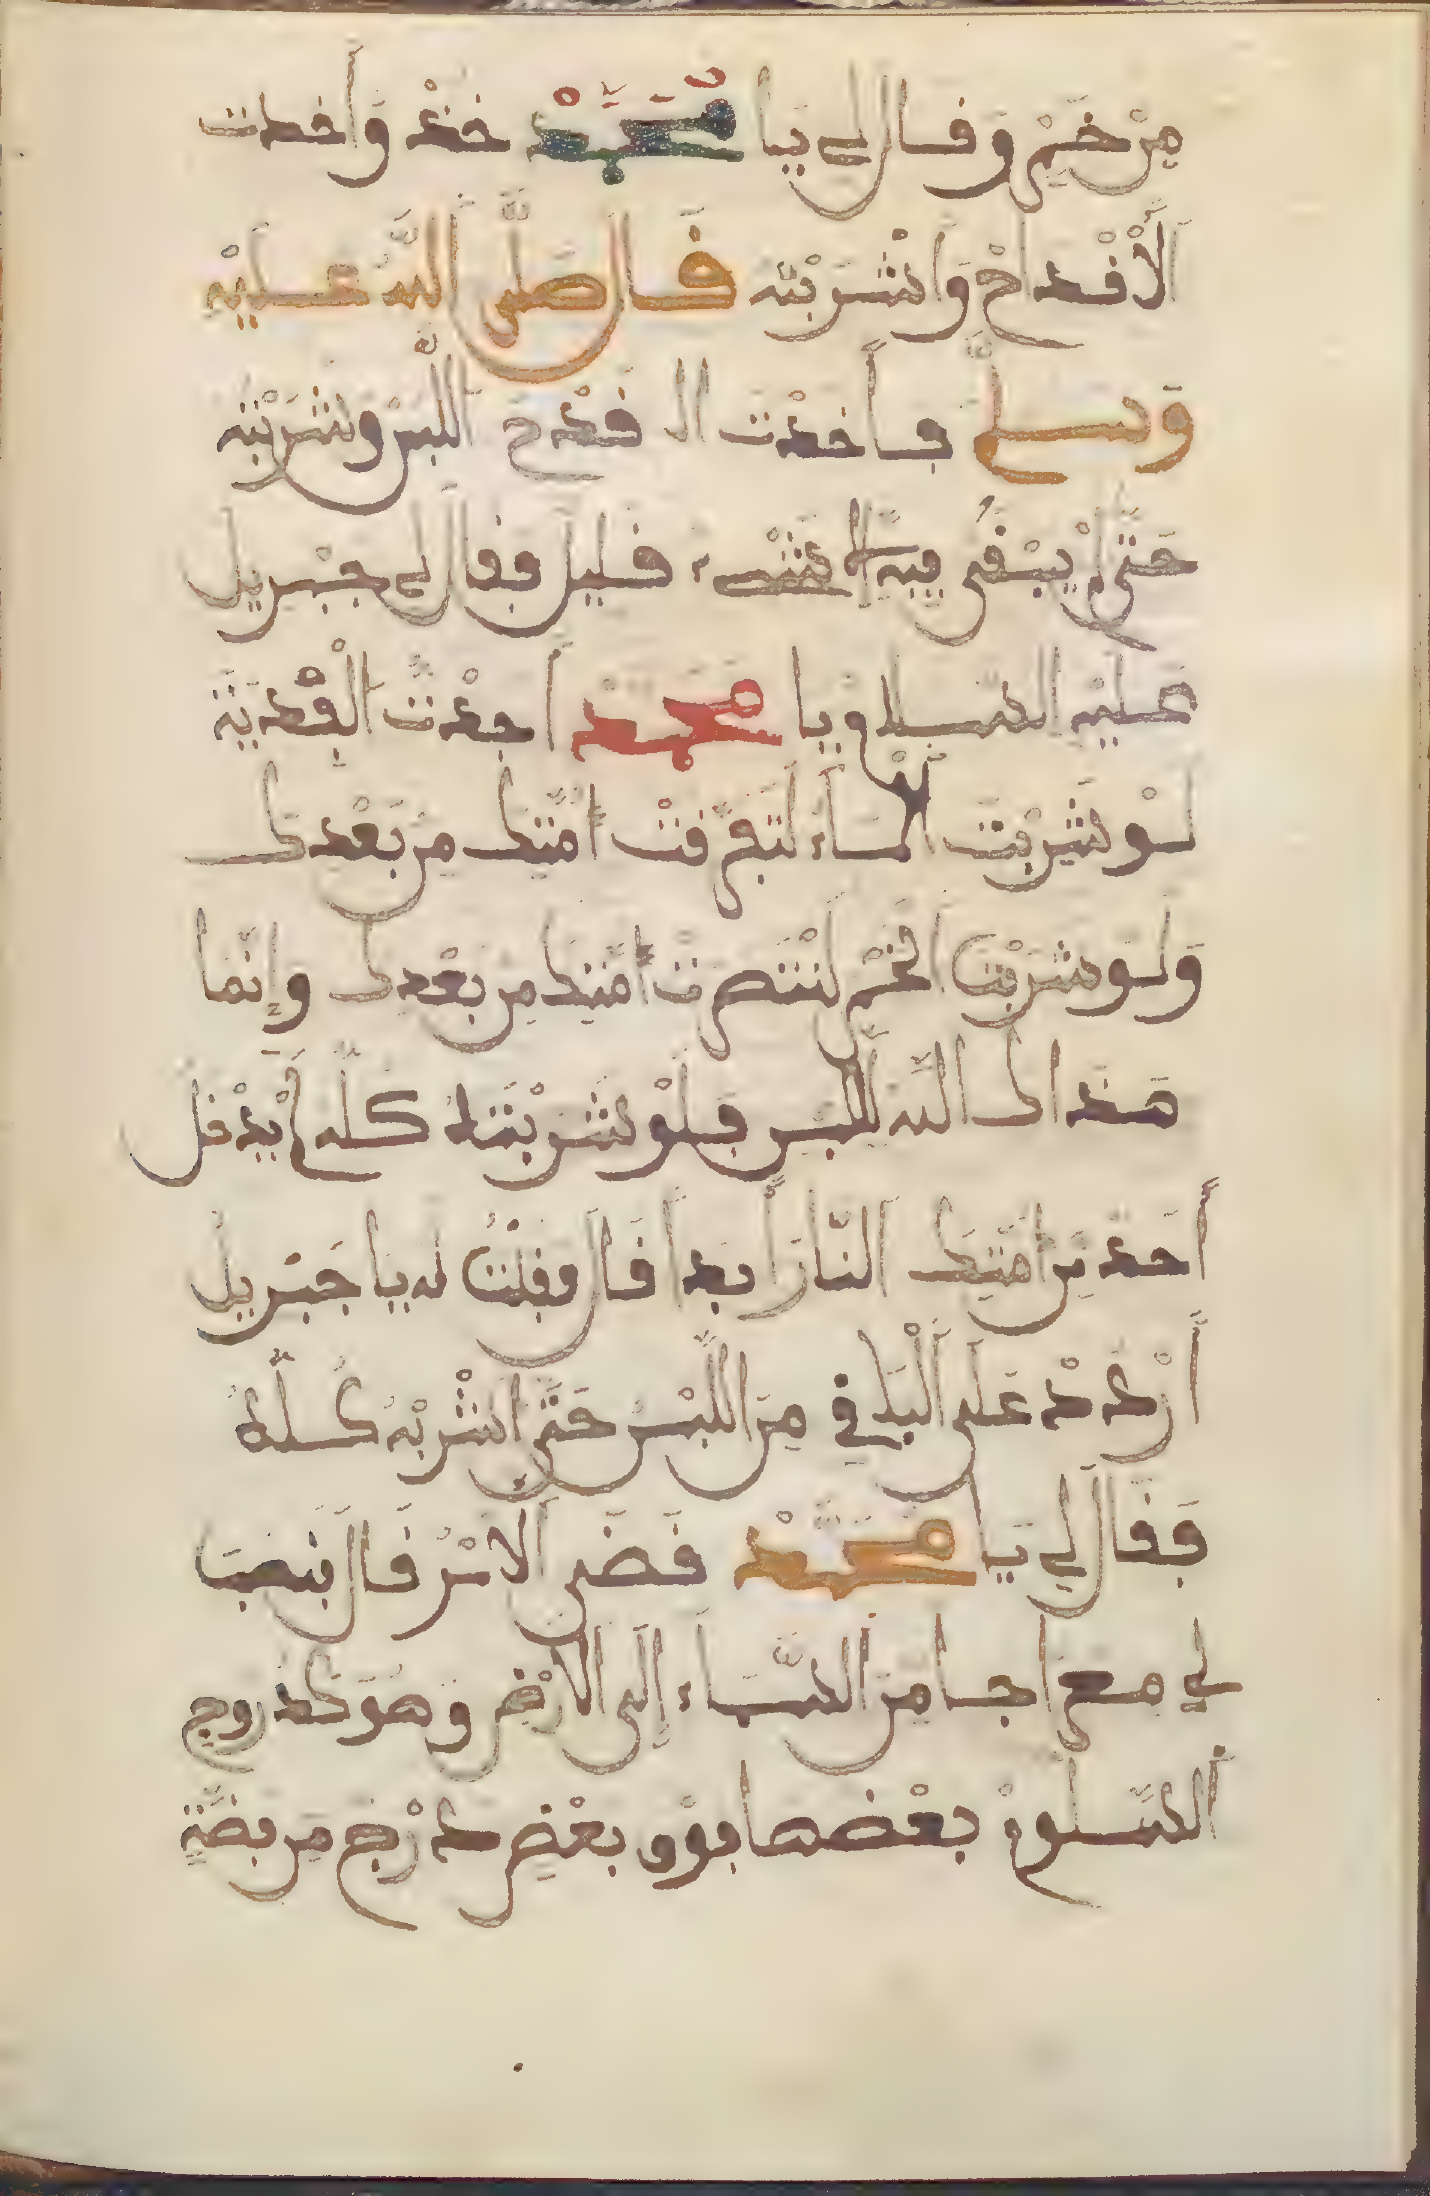 مِنْ خَمْرٍ وَقَال لي يَا مُحَمَّدْ خذْ وَأَخدت
اَلْأَقْداحْ وَاشْرَبْتَه قَال صَلَّى اللَّه عَلَيْه
وَسلم فأخذْت ال قدْح اللبن وَشَرَبْته
حَتَّى لم يبْقَى فِيه إلا شَيْء قليل فقال لي جبْريل
عَليْه السلام يا محمد أخذْتَ الْقدية
لوْ شَربْتَ الْمَاء لَتَغرّقتْ أمَّتك من بَعْدك
وَلَو شَرَبْتَ الخَمْر لَتنَصرتْ أمّتك من بَعْدك وإنّما
هَذاك اللَّه للَّبن فلوْ شَرَبْتَهُ كلّه لمْ يدْخل
أحد مِن أمّتِك النَّار أبدا قال فقلْتُ له يا جَبْريل
أرْدُدْ عَلى الْباقي مِن اللبَن حَتَّى اشْربْهُ كُلّهُ
فَقَال لي يَا مُحَمَّدْ قَضَى الامْرُ قَال فنصبَ
لي معراجا مِن السَّمَاء إلَى الارْض وَهُو كدروج
السّلومْ بَعْضها فوْق بعْضٍ درْج مِن فضّةٍ